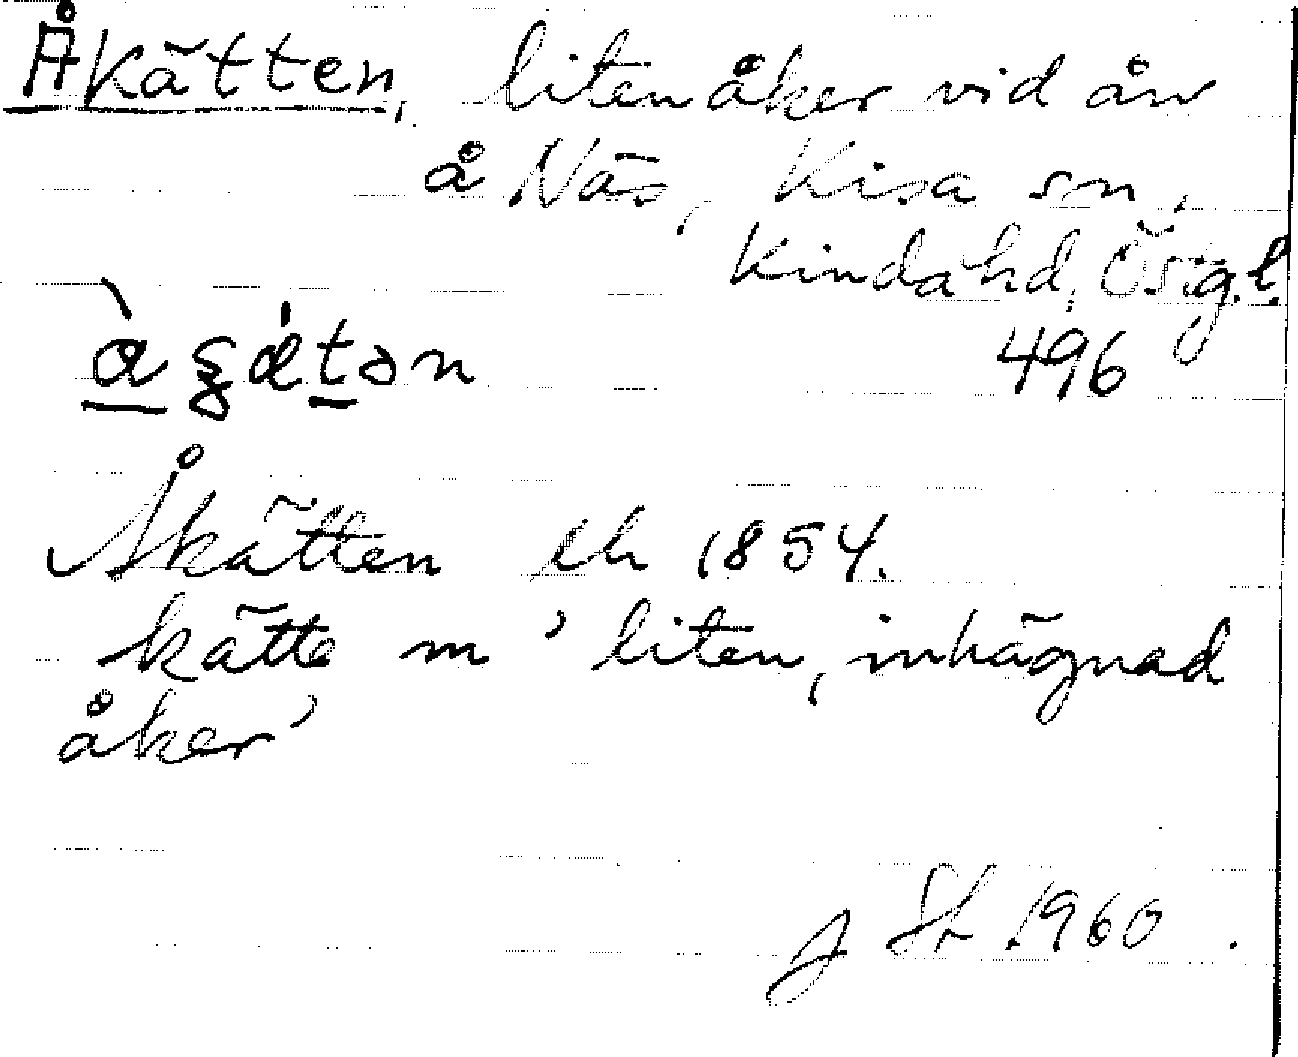 Åkätten, liten åker vid ån
å Näs, Kisa sn,
Kinda hd, Östg.l.
496
Åkätten 1854.
kätte m ' liten, inhägnad
åker'
1960.